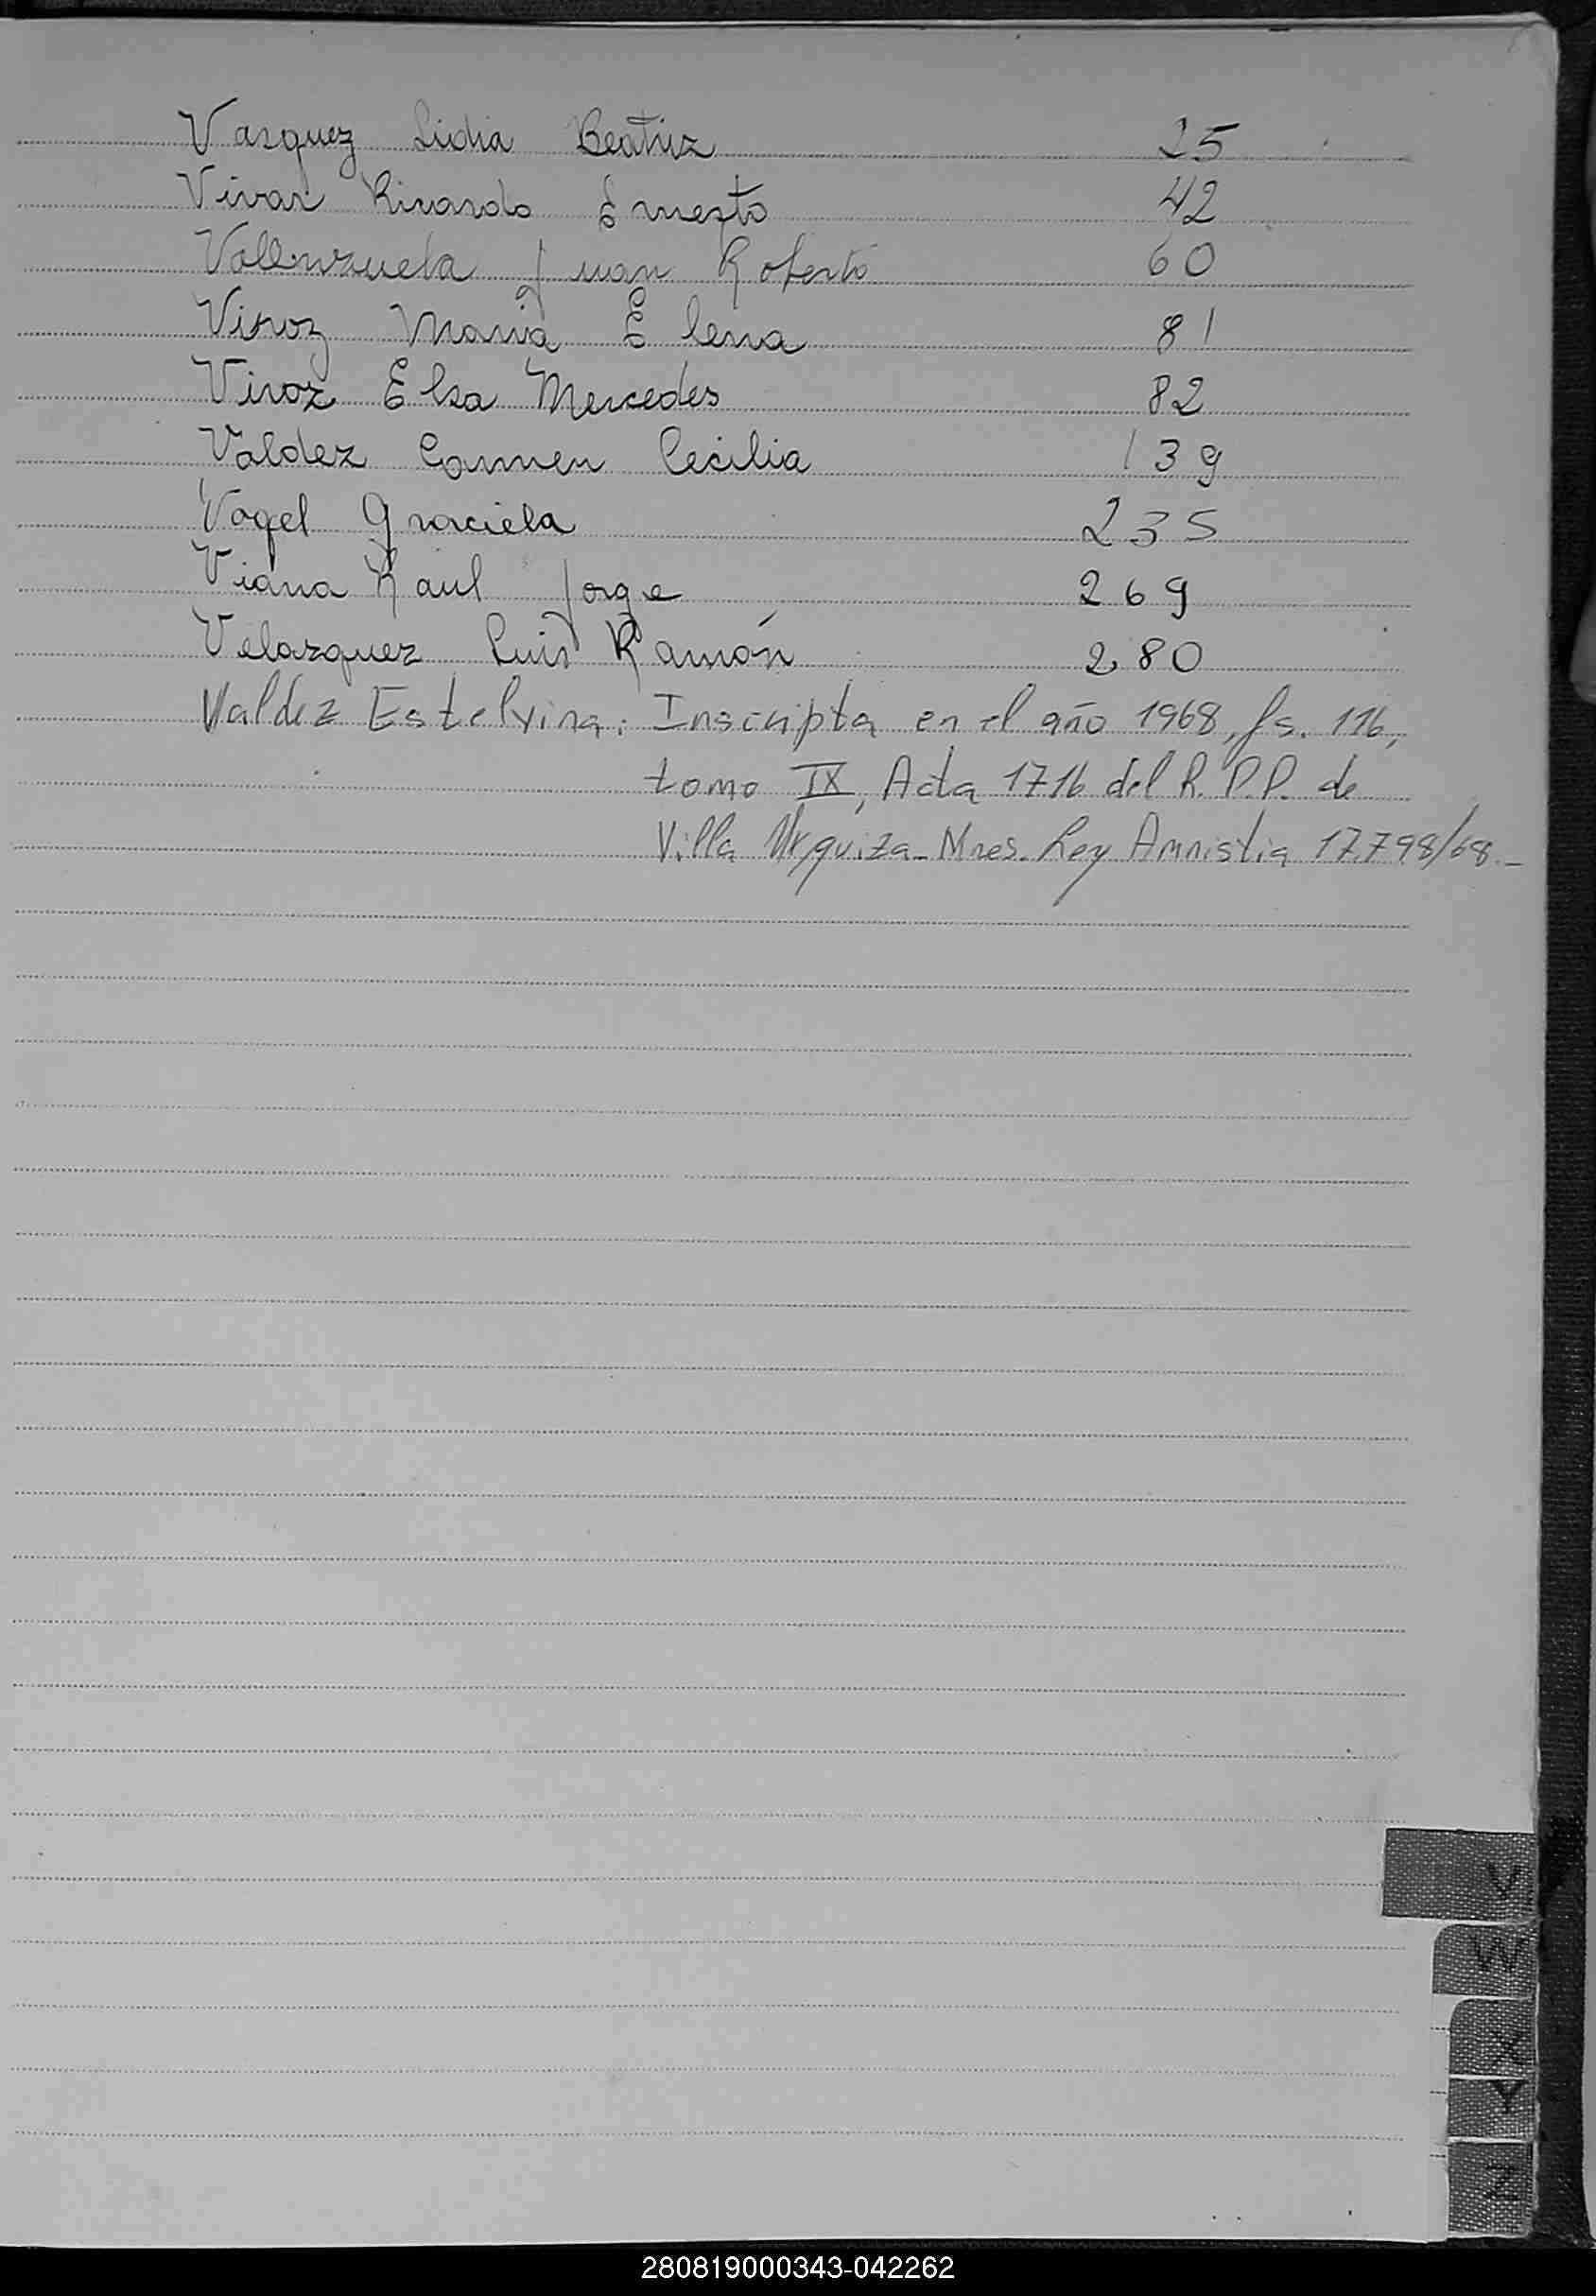 Vasquez Lidia Beatriz 25
Vivar Ricardo Ernesto 42
Vallenzuela Juan Roberto 60
Viroz Maria Elena 81
Viroz Elsa Mercedes 82
Valdez Carmen Cecilia 139
Vogel Graciela 235
Viana Raul Jorge 269
Velazquez Luis Ramón 280
Valdez Estelvina: Inscripta en el año 1968, fs. 116,
tomo IX, Acta 1716 del R. P.P. de
Villa Urquiza - Mnes. Ley Amnistia 17.798/68.-
V
W
X
Y
Z
280819000343-042262